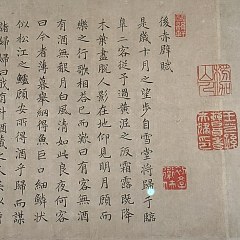 後赤壁賦
是歲十月之望步自雪堂將歸于臨
皐二客從予過黃泥之坂霜露既降
木葉盡脫人影在地仰見明月顧而
樂之行歌相答已而歎曰有客無酒
有酒無殽月白風清如此良夜何客
曰今者薄暮舉網得魚巨口細鱗狀
似松江之鱸顧安所得酒乎歸而謀
諸婦婦曰我有斗酒藏之久矣以